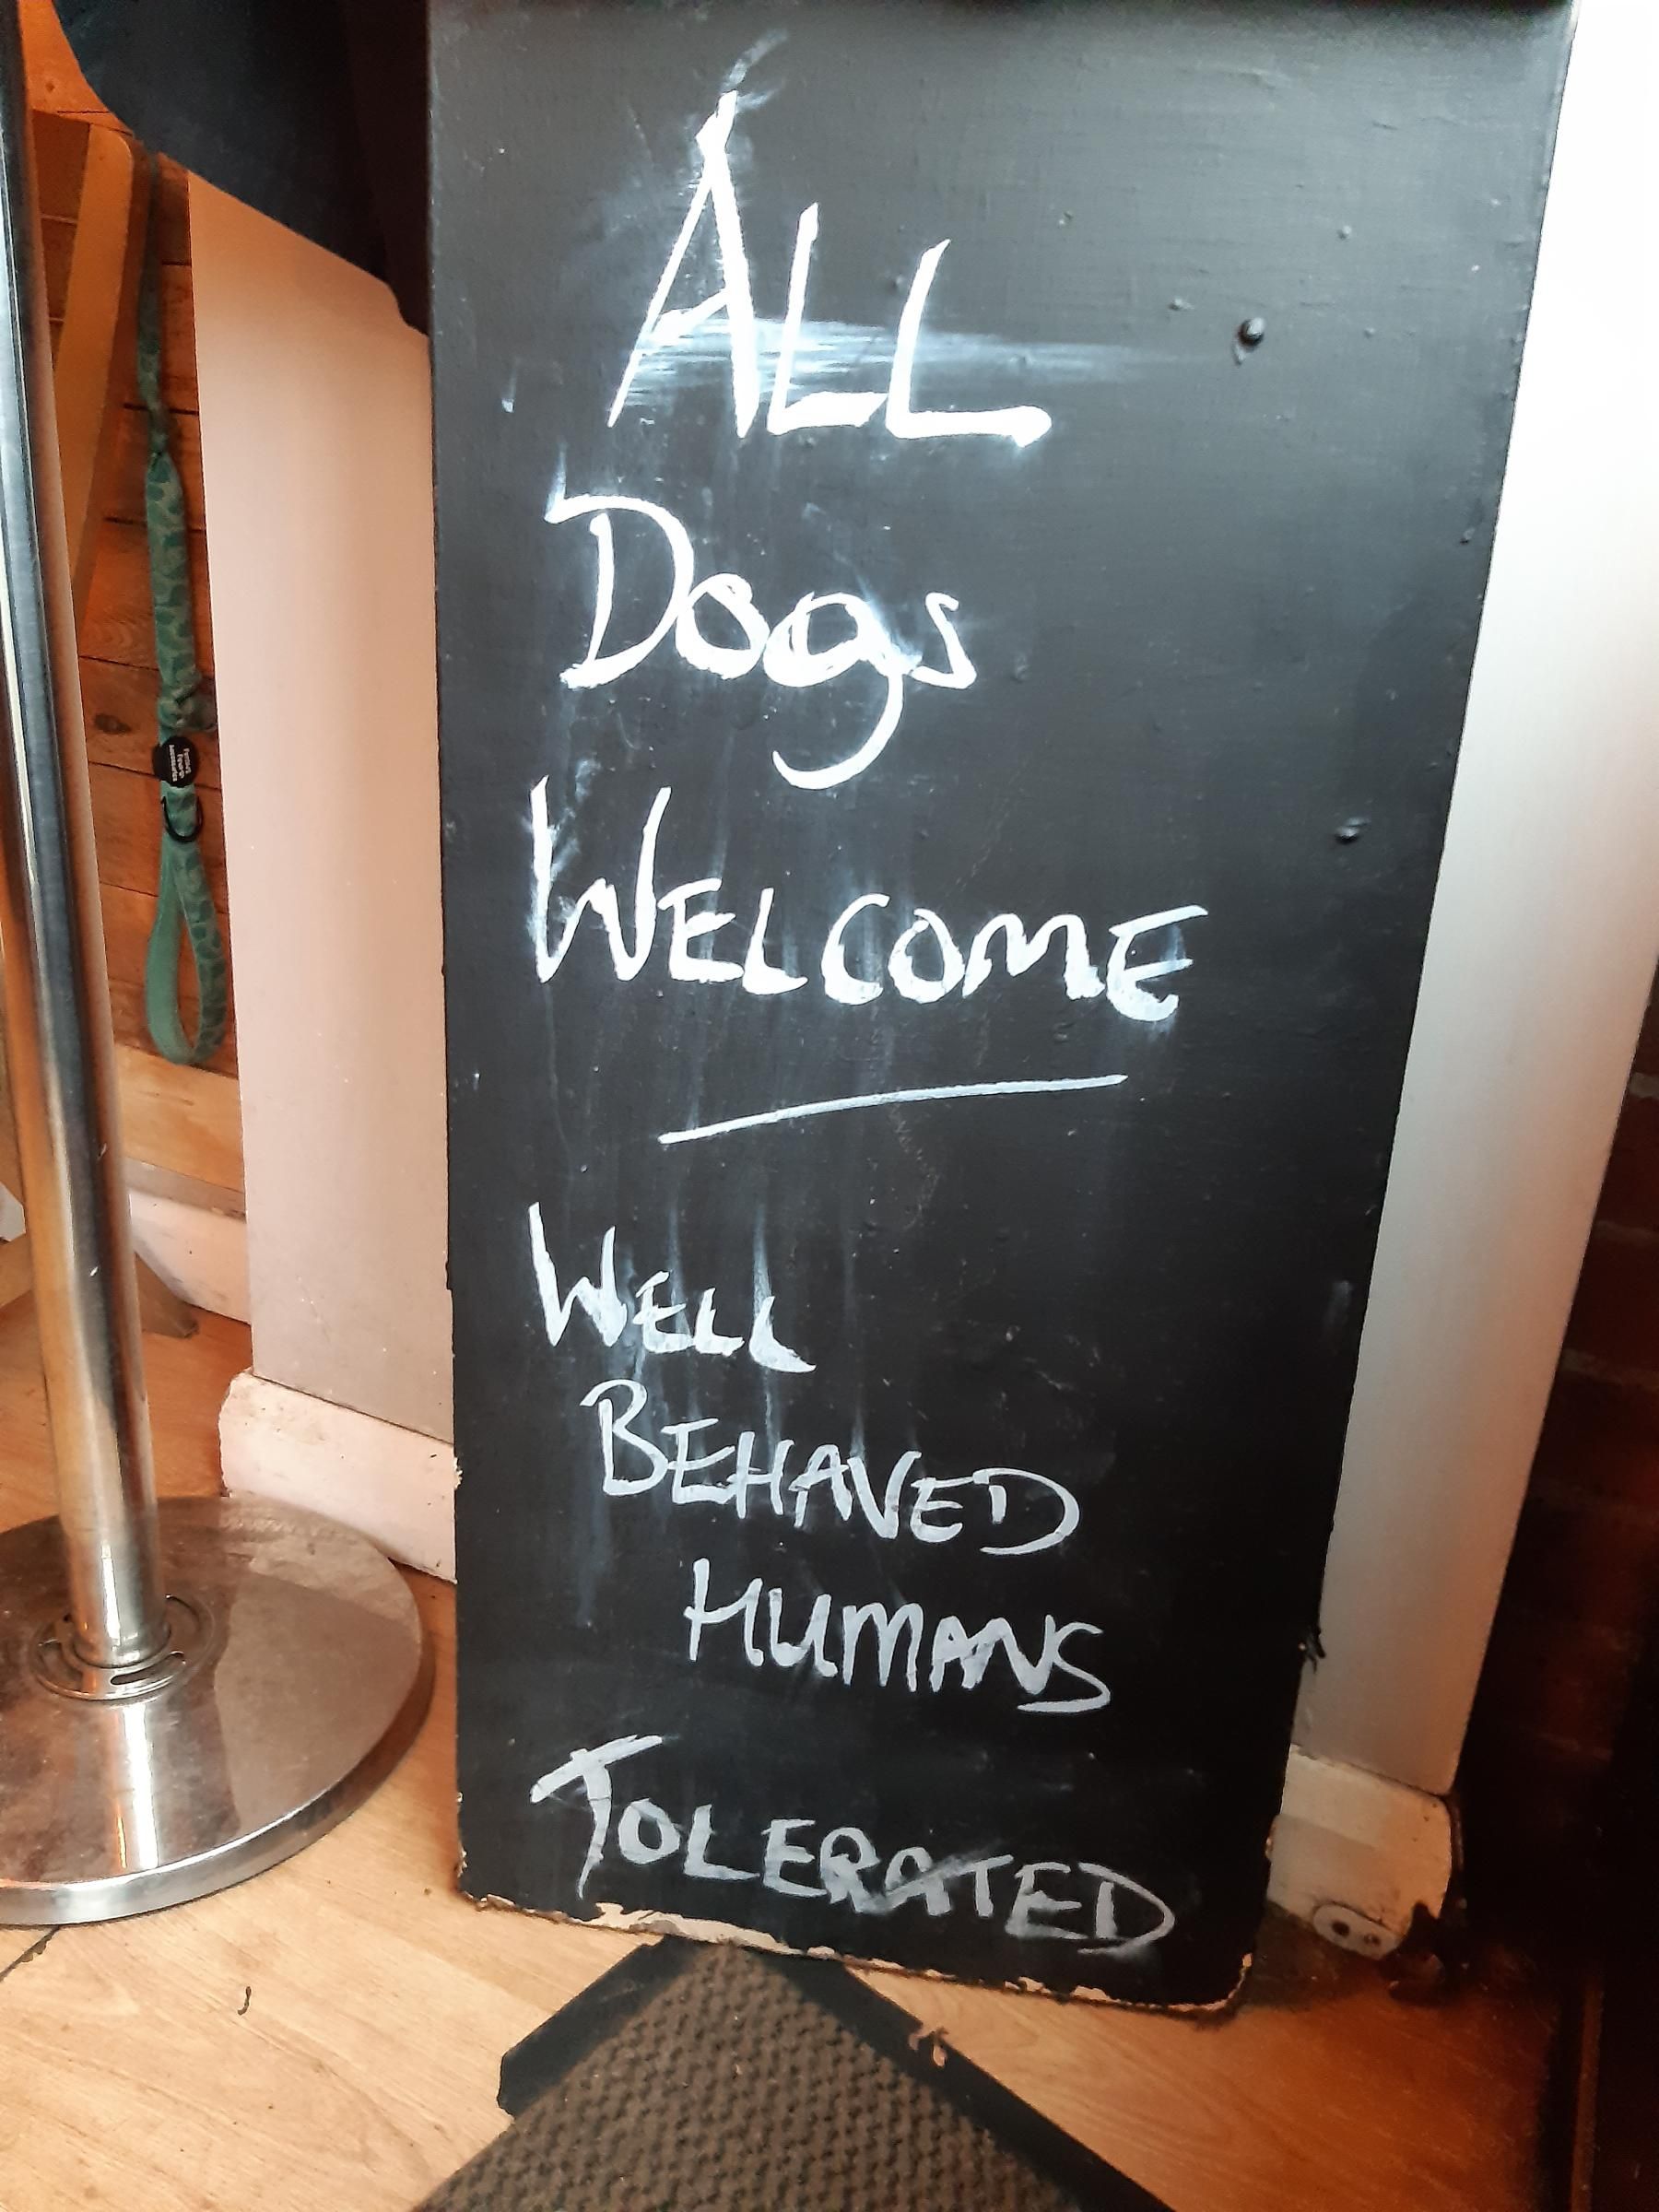 ALL
Dogs
WELCOME
WELL
BEHAVED
HUMANS
TOLERATED